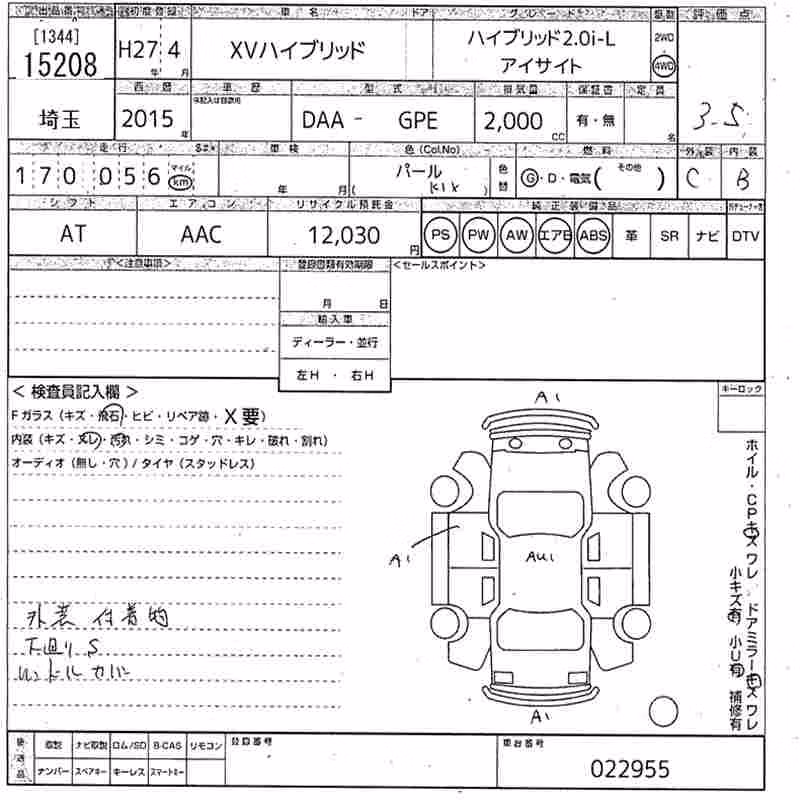 出品番号 初度登録 車名 ドア グレード 駆動 評価点
[1344]
15208
H27 4
年 月
XVハイブリッド
ハイブリッド2.0i-L
アイサイト
2WD
4WD
3.5
埼玉
西暦 車歴 型式 排気量 保証書 定員
2015 年
DAA - GPE
2,000 CC
有・無
名
走行 車検 色(Col.No) 燃料 外装 内装
170056 マイル km
年 月
パール
( K1X )
色替
G・D・電気( その他 )
C
B
シフト エアコン リサイクル預託金 純正装備品
AT
AAC
12,030 円
PS PW AW エアB ABS 革 SR ナビ DTV
<注意事項>
登録書類有効期限
<セールスポイント>
月 日
輸入車
ディーラー・並行
左H・右H
< 検査員記入欄 >
Fガラス (キズ・飛石・ヒビ・リペア跡・X要)
内装 (キズ・スレ・汚れ・シミ・コゲ・穴・キレ・破れ・割れ)
オーディオ (無し・穴) / タイヤ (スタッドレス)
外装 付着物
下廻り S
ハンドルカバー
キーロック
A1
A1
AU1
A1
ホイル・CPキズワレ ドアミラーキズワレ
小キズ有 小U有 補修有
後送品
取説 ナビ取説 ロム/SD B-CAS リモコン
ナンバー スペアキー キーレス スマートキー
登録番号
車台番号
022955